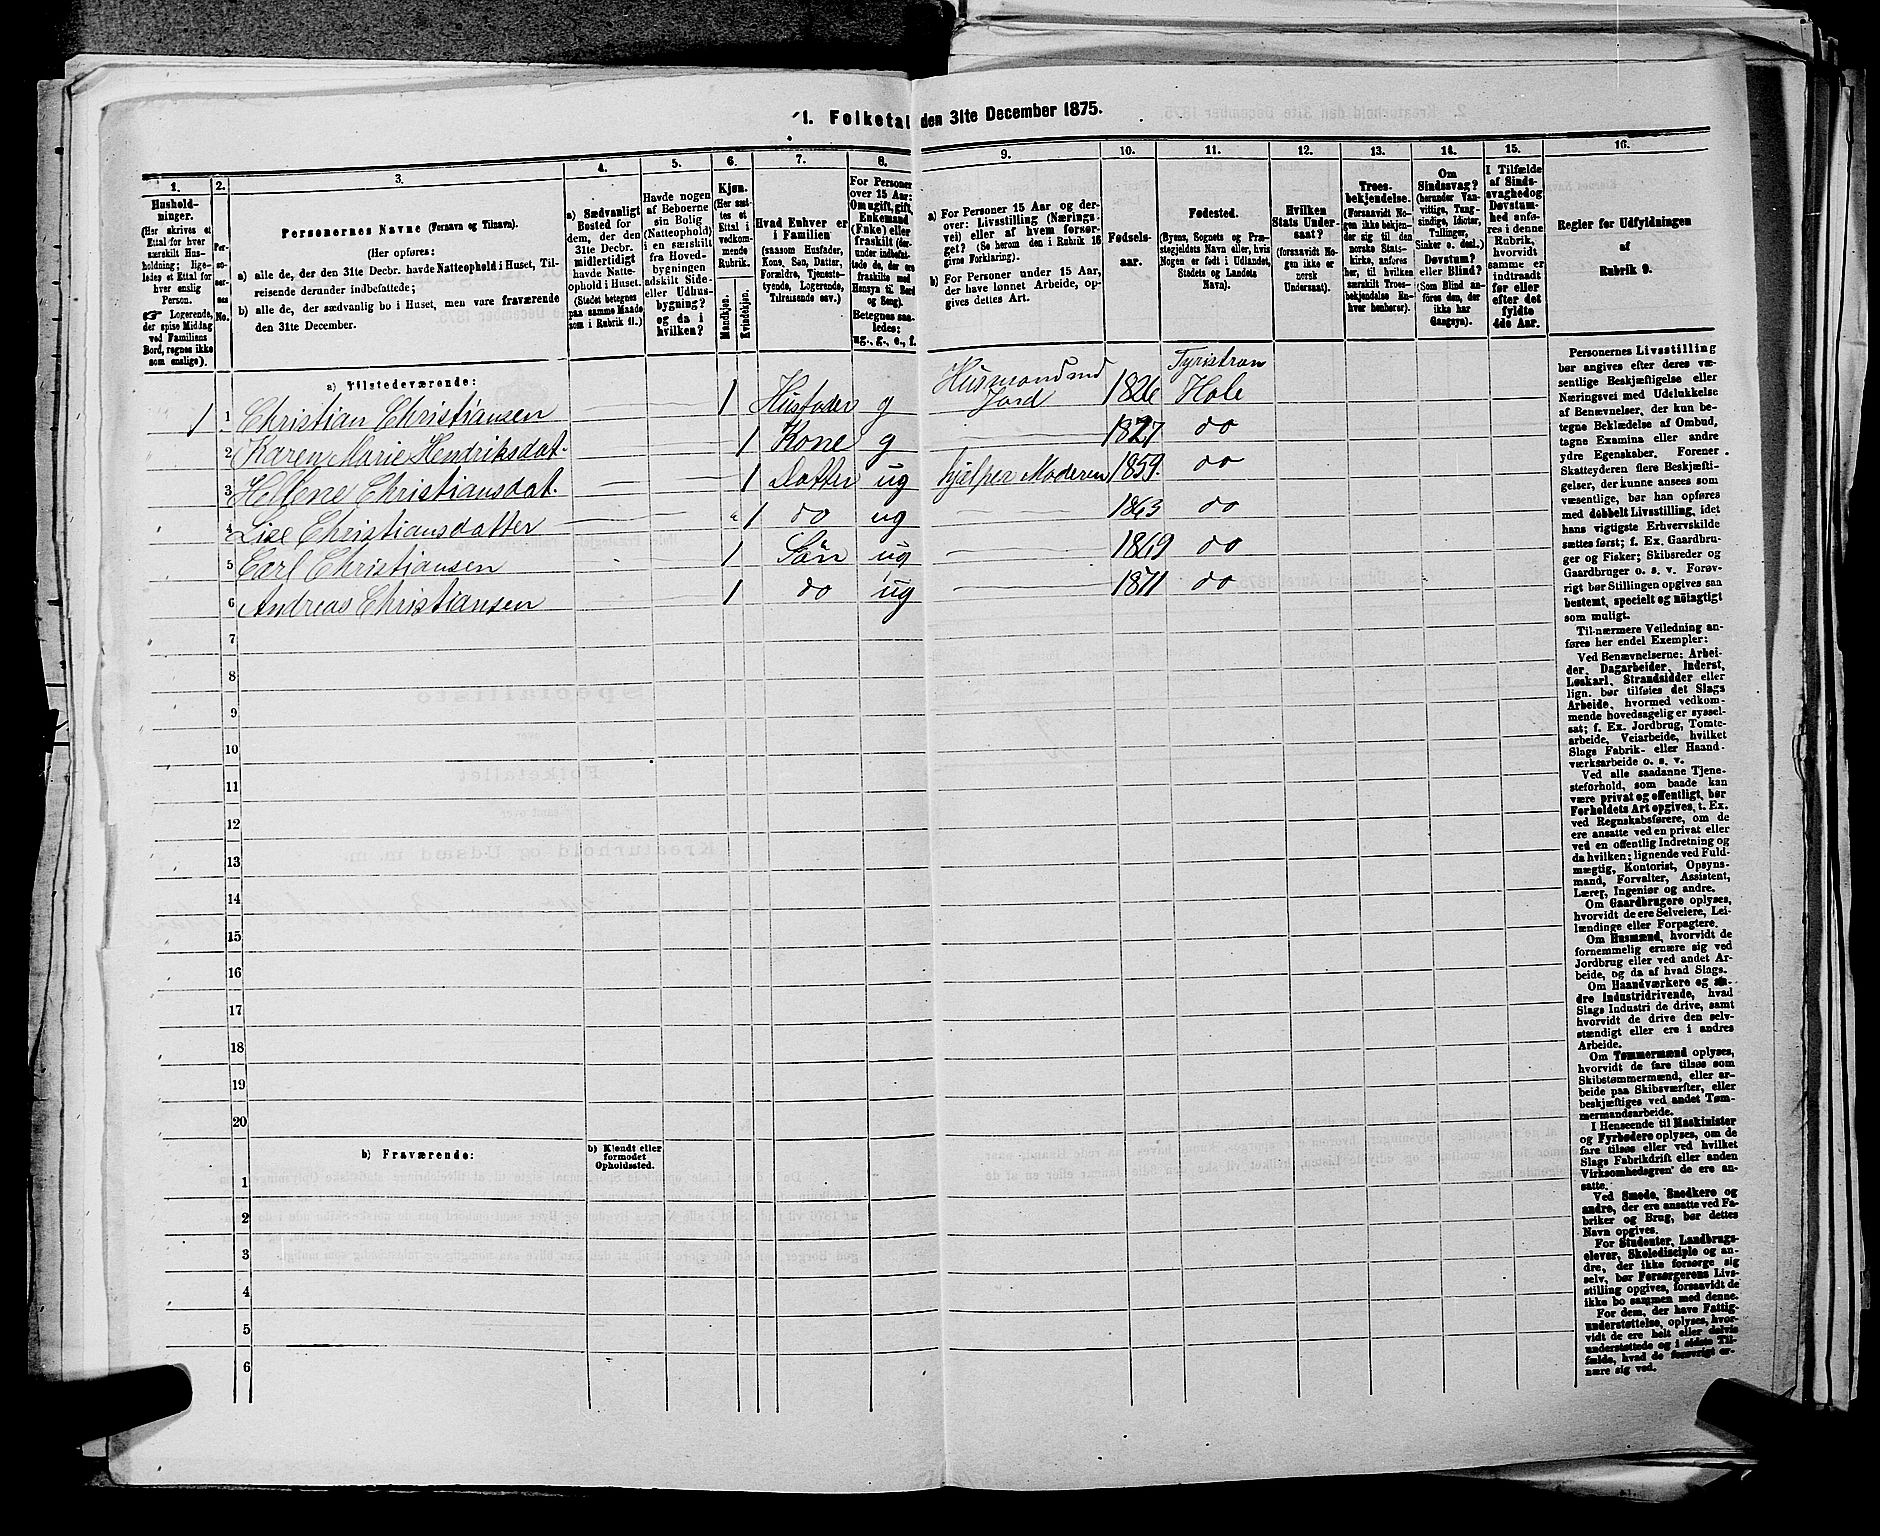 1. Folketal den 31te December 1875.
1.
Hushold-
ninger.
(Her skrives et
Ettal for hver
særskilt Hus-
holdning; lige-
ledes et Ettal for
hver enslig
Person.
☞ Logerende,
der spise Middag
ved Familiens
Bord, regnes ikke
som enslige).
2.
Per-
so-
ner-
nes
No.
3.
Personernes Navne (Fornavn og Tilnavn).
(Her opføres:
a) alle de, der den 31te Decbr. havde Natteophold i Huset, Til-
reisende derunder indbefattede;
b) alle de, der sædvanlig bo i Huset, men vare fraværende
den 31te December.
4.
a) Sædvanligt
Bosted for
dem, der den
31te Decbr.
midlertidigt
havde Natte-
ophold i Huset.
(Stedet betegnes
paa samme Maade
som i Rubrik 11.)
5.
Havde nogen
af Beboerne
sin Bolig
(Natteophold)
i en særskilt
fra Hoved-
bygningen
adskilt Side-
eller Udhus-
bygning?
og da i
hvilken?
6.
Kjøn.
(Her sæt-
tes et
Ettal i
vedkom-
mende
Rubrik.
Mandkjøn.
Kvindekjøn.
7.
Hvad Enhver er
i Familien
(saasom Husfader,
Kone, Søn, Datter,
Forældre, Tjeneste-
tyende, Logerende,
Tilreisende osv.)
8.
For Personer
over 15 Aar:
Om ugift, gift,
Enkemand
(Enke) eller
fraskilt (der-
under indbefat-
tede de, der ere
fraskilte med
Hensyn til Bord
og Seng).
Betegnes saa-
ledes:
ug., g., e., f.
9.
a) For Personer 15 Aar og der-
over: Livsstilling (Nærings-
vei) eller af hvem forsør-
get? (Se herom den i Rubrik 16
givne Forklaring).
b) For Personer under 15 Aar,
der have lønnet Arbeide, op-
gives dettes Art.
10.
Fødsels-
aar.
11.
Fødested.
(Byens, Sognets og Præ-
stegjeldets Navn eller, hvis
Nogen er født i Udlandet,
Stedets og Landets
Navn).
12.
Hvilken
Stats Under-
saat?
(forsaavidt No-
gen ikke er
norsk
Undersaat).
13.
Troes-
bekjendelse.
(Forsaavidt No-
gen ikke bekjen-
der sig til den
norske Stats-
kirke, anføres
her, til hvilken
særskilt Troes-
bekjendelse En-
hver henhører).
14.
Om
Sindssvag?
(herunder Van-
vittige, Tung-
sindige, Idioter,
Tullinger,
Sinker o. desl.)
Døvstum?
eller Blind?
(Som Blind an-
føres den, der
ikke har
Gangsyn).
15.
I Tilfælde
af Sinds-
svaghed og
Døvstum-
hed anfø-
res i denne
Rubrik,
hvorvidt
samme er
indtraadt
før eller
efter det
fyldte
4de Aar.
16.
Regler for Udfyldningen
af
Rubrik 9.
a) Tilstedeværende:
1 1 Christian Christiansen 1 Husfader g Husmand med Jord 1826 Tyristran Hole
2 Karen Marie Hendriksdat. 1 Kone g 1827 do
3 Hellene Christiansdat. 1 Datter ug hjelper Moderen 1859. do
4 Lise Christiansdatter 1 do ug 1863 do
5 Carl Christiansen 1 Søn ug 1869 do
6 Andreas Christiansen 1 do ug 1871 do
7
8
9
10
11
12
13
14
15
16
17
18
19
20
b) Fraværende:
b) Kjendt eller
formodet
Opholdssted.
1
2
3
4
5
6
Personernes Livsstilling
bør angives efter deres væ-
sentlige Beskjæftigelse eller
Næringsvei med Udelukkelse
af Benævnelser, der kun be-
tegne Beklædelse af Ombud,
tagne Examina eller andre
ydre Egenskaber. Forener
Skatteyderen flere Beskjæfti-
gelser, der kunne ansees som
væsentlige, bør han opføres
med dobbelt Livsstilling, idet
hans vigtigste Erhvervskilde
sættes først; f. Ex. Gaardbru-
ger og Fisker; Skibsreder og
Gaardbruger o. s. v. Forøv-
rigt bør Stillingen opgives saa
bestemt, specielt og nøiagtigt
som muligt.
Til nærmere Veiledning an-
føres her endel Exempler:
Ved Benævnelserne: Arbei-
der, Dagarbeider, Inderst,
Løskarl, Strandsidder eller
lign. bør tilføies det Slags
Arbeide, hvormed vedkom-
mende hovedsagelig er syssel-
sat; f. Ex. Jordbrug, Tomte-
arbeide, Veiarbeide, hvilket
Slags Fabrik- eller Haand-
værksarbeide o. s. v.
Ved alle saadanne Tjene-
steforhold, som baade kan
være privat og offentligt, bør
Forholdets Art opgives, t. Ex.
ved Regnskabsførere, om de
ere ansatte ved en privat eller
ved en offentlig Indretning og
da hvilken; lignende ved Fuld-
mægtig, Kontorist, Opsyns-
mand, Forvalter, Assistent,
Lærer, Ingeniør og andre.
Om Gaardbrugere oplyses,
hvorvidt de ere Selveiere, Lei-
lændinge eller Forpagtere.
Om Husmænd, hvorvidt de
fornemmelig ernære sig ved
Jordbrug eller ved andet Ar-
beide, og da af hvad Slags.
Om Haandværkere og an-
dre Industridrivende, hvad
Slags Industri de drive, samt
hvorvidt de drive den selv-
stændigt eller ere i andres
Arbeide.
Om Tømmermænd oplyses,
hvorvidt de fare tilsøs som
Skibstømmermænd, eller ar-
beide paa Skibsværfter, eller
beskjæftiges ved andet Tøm-
mermandsarbeide.
I Henseende til Maskinister
og Fyrbødere oplyses, om de
fare tilsøs eller ved hvilket
Slags Fabrikdrift eller anden
Virksomhedsgren de ere an-
satte.
Ved Smede, Snedkere og
andre, der ere ansatte ved Fa-
briker og Brug, bør dettes
Navn opgives.
For Studenter, Landbrugs-
elever, Skoledisciple og an-
dre, der ikke forsørge sig
selv, bør Forsørgerens Livs-
stilling opgives, forsaavidt de
ikke bo sammen med denne.
For dem, der have Fattig-
understøttelse, oplyses, hvor-
vidt de ere helt eller delvis
understøttede og i sidste Til-
fælde, hvad de forøvrigt er-
nære sig ved.